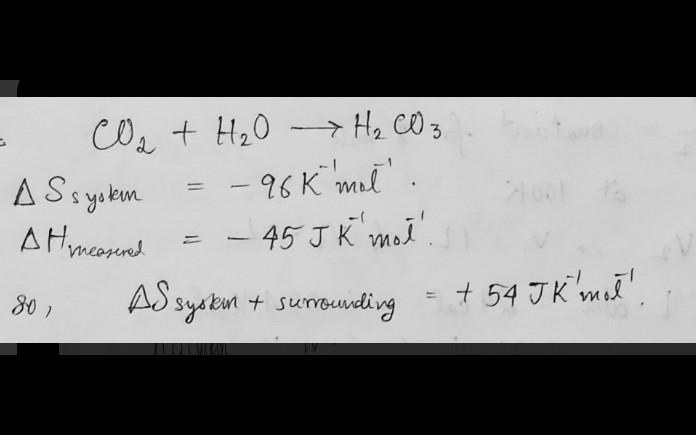 CO₂ + H₂O → H₂CO₃
ΔS system = - 96 K⁻¹mol⁻¹.
ΔH measured = - 45 J K⁻¹ mol⁻¹.
so, ΔS system + surrounding = + 54 JK⁻¹mol⁻¹.